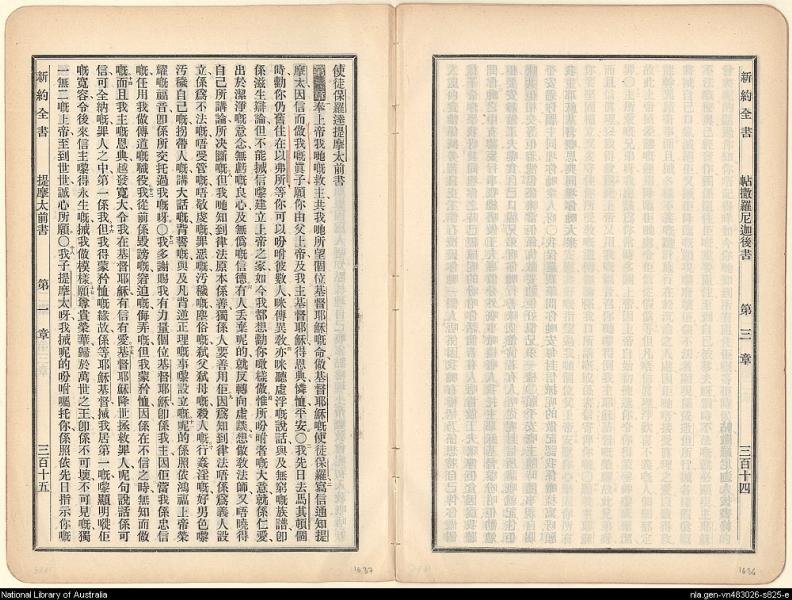 新約全書 帖撒羅尼迦後書 第三章 三百十四
使徒保羅達提摩太前書
奉上帝我哋嘅救主共我哋所望個位基督耶穌嘅命做基督耶穌嘅使徒保羅寫信通知提
摩太因信而做我嘅眞子願你由父上帝及我主基督耶穌得恩典憐恤平安〇我先日去馬其頓個
時勸你仍舊住在以弗所等你可以吩咐彼數人咪傳異敎亦咪聽虛浮嘅說話與及無窮嘅族譜卽
係滋生辯論但不能搣信嚟建立上帝之家如今我都想勸你噉樣做惟所吩咐者嘅大意就係仁愛
出於潔淨嘅意念無虧嘅良心及無僞嘅信德有人丟棄呢的就反轉向虛談想做敎法師又唔曉得
自己所講論所決斷嘅但我哋知到律法原本係善獨係人要善用佢因爲知到律法唔係爲義人設
立係爲不法嘅唔受管嘅唔敬虔嘅罪惡嘅汚穢嘅塵俗嘅弑父弑母嘅殺人嘅行姦淫嘅好男色嚟
汚穢自己嘅拐帶人嘅講大話嘅背誓嘅與及凡背逆正理嘅事嚟設立嘅呢的係照依鴻福上帝榮
耀嘅福音卽係所交托過我嘅呀〇我多謝賜我有力量個位基督耶穌卽係我主因佢當我係忠信
嘅任用我做傳道嘅職役我從前係毀謗嘅窘迫嘅侮弄嘅但我蒙矜恤因係在不信之時無知而做
嘅而且我主嘅恩典越發寬大令我在基督耶穌有信有愛基督耶穌降世拯救罪人呢句說話係可
信可全納嘅罪人之中第一係我但我得蒙矜恤嘅緣故係等耶穌基督搣我居第一嘅嚟顯明佢
嘅寬容令後來信主嚟得永生嘅搣我做模樣願尊貴榮華歸於萬世之王卽係不可壞不可見嘅獨
一無二嘅上帝至到世世誠心所願〇我子提摩太呀我搣呢的吩咐囑托你係照依先日指示你嘅
新約全書 提摩太前書 第一章 三百十五
1637
1636
National Library of Australia
nla.gen-vn483026-s825-e